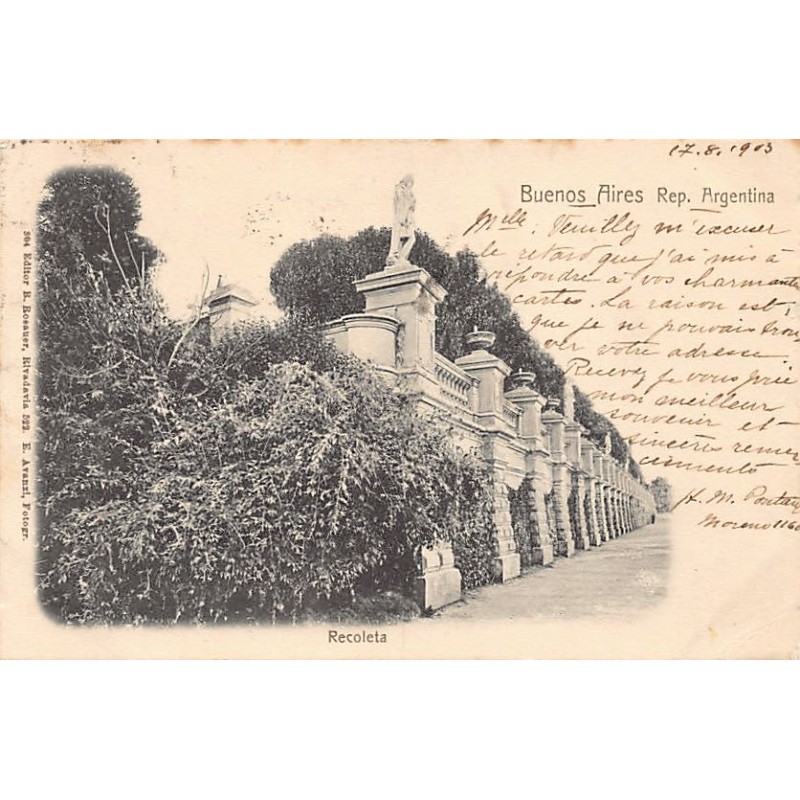 17.8.1903
Buenos Aires Rep. Argentina
Melle. Veuillez m'excuser
le retard que j'ai mis à
répondre à vos charmantes
cartes. La raison est,
que je ne pouvais trou
ver votre adresse.
Recevez je vous prie
mon meilleur
souvenir et
sincères remer
ciments
H. M.
Moreno 1160
Recoleta
304 Editor R. Rosauer, Rivadavia 522. E. Avanzi, Fotogr.